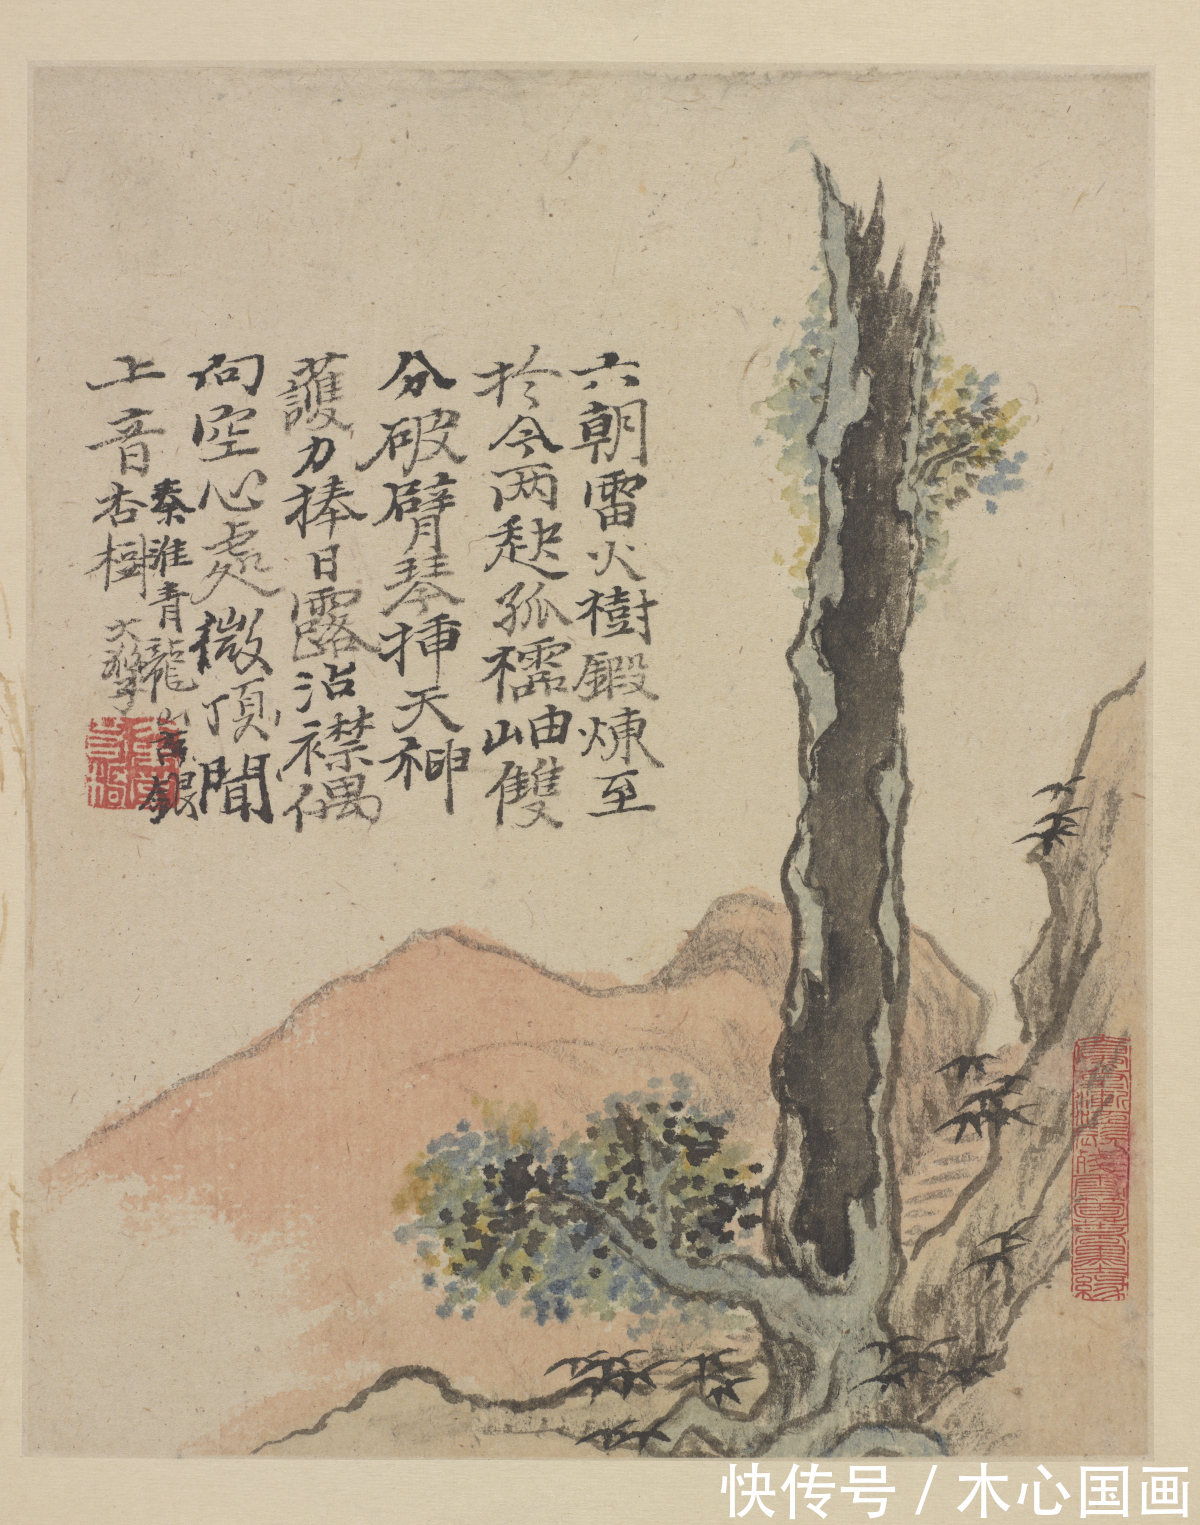 六朝雷火樹鍛煉至
於今兩赽孤襦岫雙
分破臂琴挿天神
護力捧日露沾襟偶
向空心處微頂聞
上音
秦淮青龍山古銀
杏樹
大滌子
快传号 / 木心国画